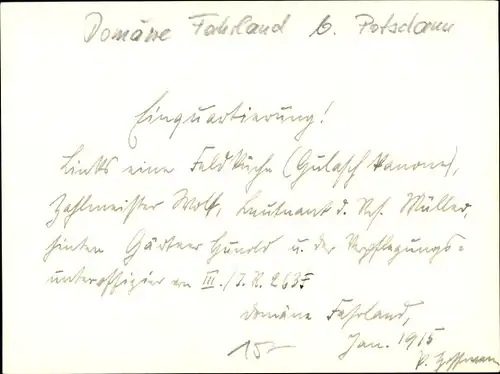 Domäne Fahrland b. Potsdam
Einquartierung!
Links eine Feldküche (Gulasch Kanone),
Zahlmeister Wolf, Leutnant d. Res. Müller,
hinten Gärtner Hunold u. der Verpflegungs-
unteroffizier von III./I.R. 263
Domäne Fahrland,
Jan. 1915
15-
P. Hoffmann